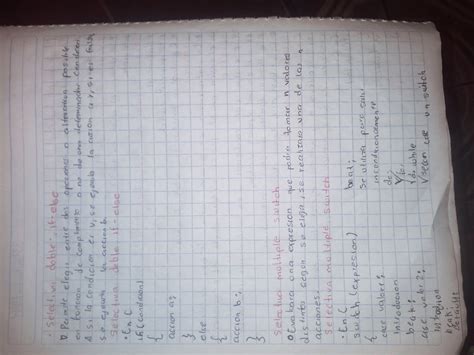 • Selectiva doble: if-else
Permite elegir entre dos opciones o alternativa posible
en funcion de cumplimiento o no de una determinada condicion
Δ si la condicion es v, se ejecuta la accion a v, si es falsa,
se ejecuta la accion b.
Selectiva doble if-else
• En C
if (condicion)
{
accion a;
}
else
{
accion b;
}
Selectiva multiple switch
una expresion que podra tomar n valores
distinto segun se elija, se realizara una de las n
acciones.
Selectiva multiple switch
• En C
switch (expresion)
{
case valor 1:
break;
case valor 2:
break;
Se utiliza para salir
incondicionalmente
de:
do while
sean case un switch